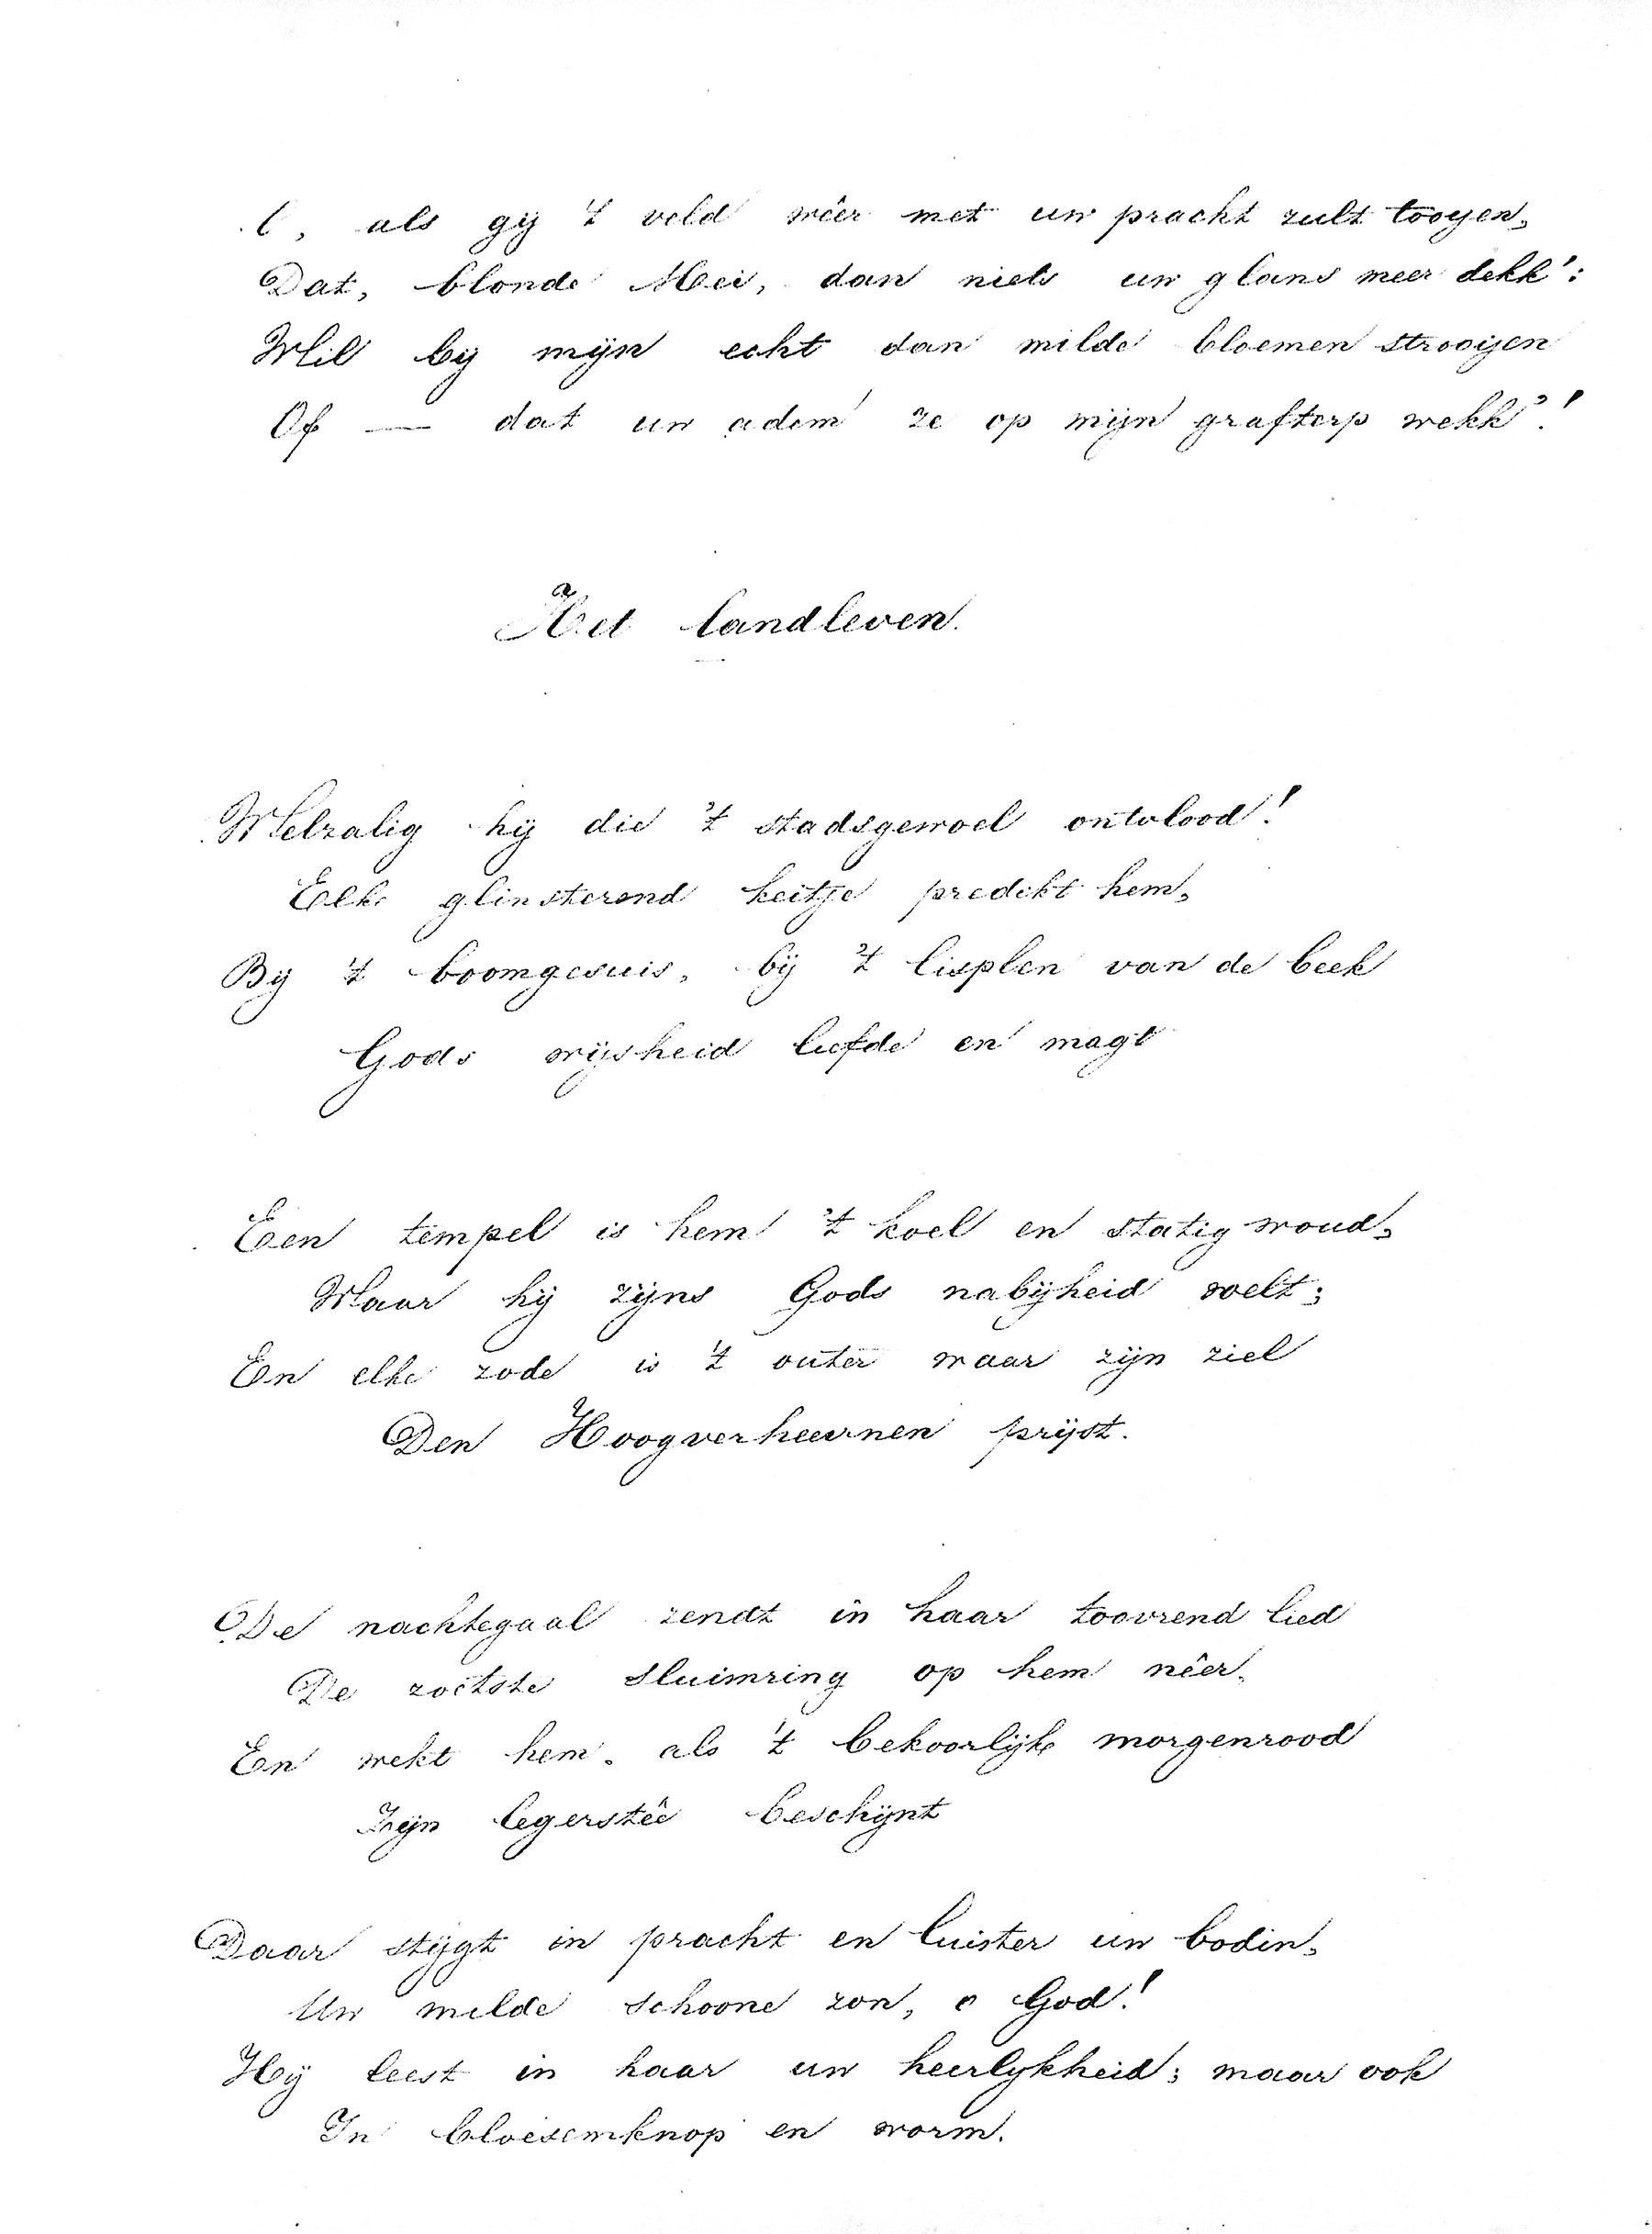 O, als gij 't veld wêer met uw pracht zult tooyen,
Dat, blonde Mei, dan niets uw glans meer dekk':
Wil bij mijn echt dan milde bloemen strooijen
Of — dat uw adem ze op mijn grafterp wekk'!
Het landleven.
Welzalig hij die 't stadsgewoel ontvlood!
Elk glinsterend keitje predikt hem,
Bij 't boomgesuis, bij 't lisplen van de beek
Gods wijsheid liefde en magt
Een tempel is hem 't koel en statig woud,
Waar hij zijns Gods nabijheid voelt;
En elke zode is 't outer waar zijn ziel
Den Hoogverheevnen prijst.
De nachtegaal zendt in haar toovrend lied
De zoetste sluimring op hem nêer,
En wekt hem, als 't bekoorlijk morgenrood
Zijn legerstêe beschijnt
Daar stijgt in pracht en luister uw bodin,
Uw milde schoone zon, o God!
Hij leest in haar uw heerlykheid; maar ook
In bloesemknop en worm.